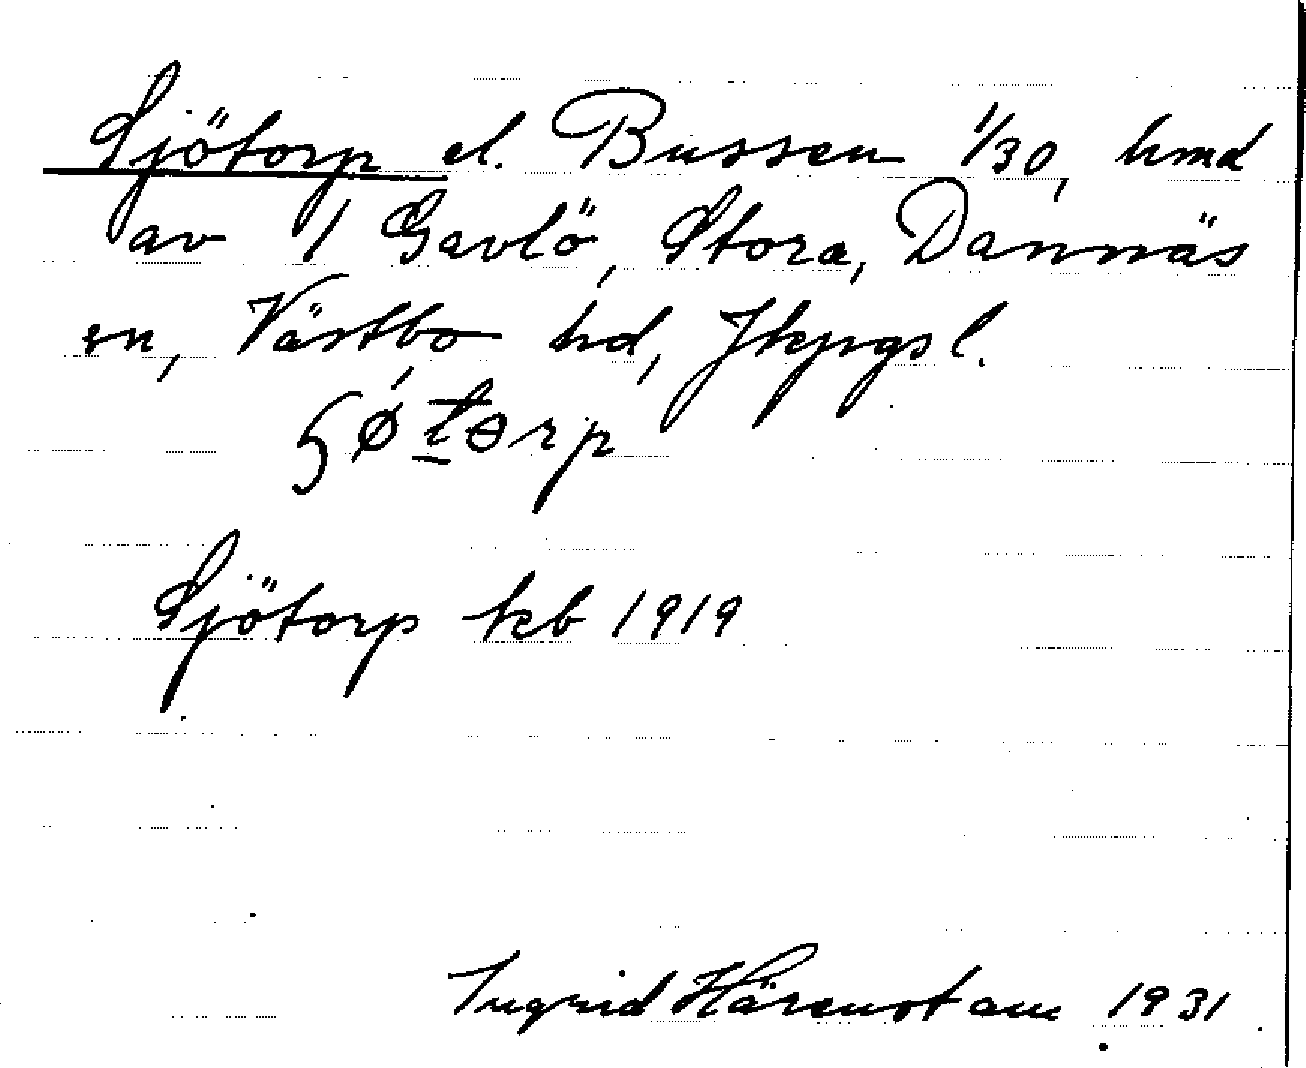 Sjötorp el. Bussen 1/30, hmd
av 1 Gavlö, Stora, Dannäs
sn, Västbo hd, Jkpgs l.
Sjötorp kb 1919
Ingrid Härenstam 1931